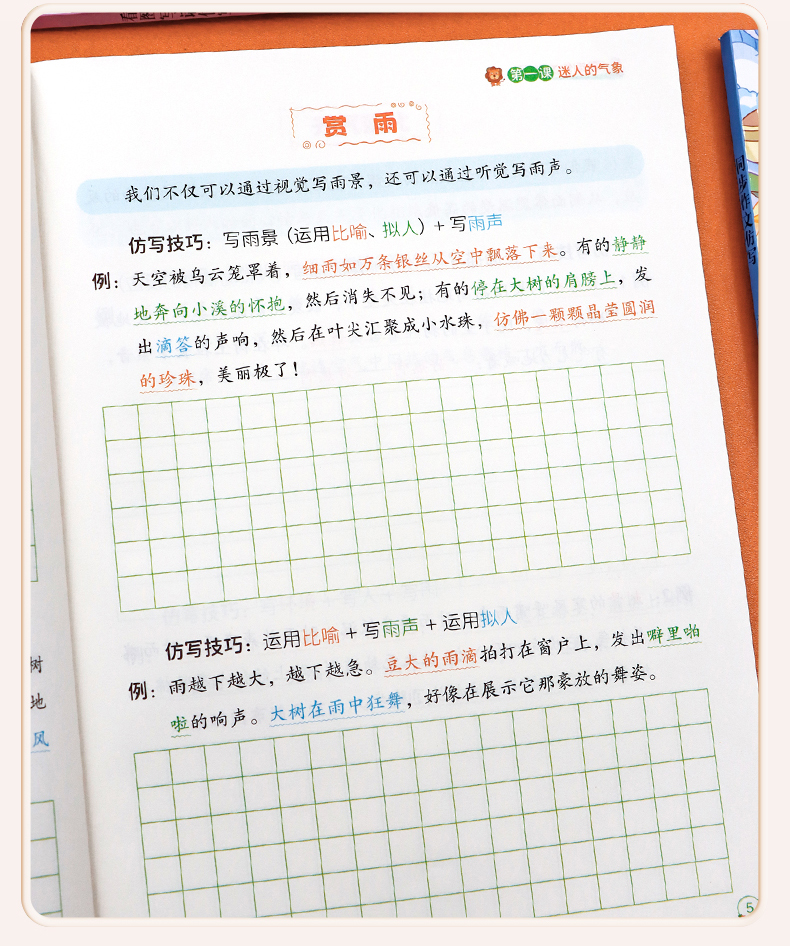 第一课 迷人的气象
赏 雨
我们不仅可以通过视觉写雨景，还可以通过听觉写雨声。
仿写技巧：写雨景（运用比喻、拟人）+ 写雨声
例：天空被乌云笼罩着，细雨如万条银丝从空中飘落下来。有的静静
地奔向小溪的怀抱，然后消失不见；有的停在大树的肩膀上，发
出滴答的声响，然后在叶尖汇聚成小水珠，仿佛一颗颗晶莹圆润
的珍珠，美丽极了！
仿写技巧：运用比喻 + 写雨声 + 运用拟人
例：雨越下越大，越下越急。豆大的雨滴拍打在窗户上，发出噼里啪
啦的响声。大树在雨中狂舞，好像在展示它那豪放的舞姿。
树
地
风
5
同步作文仿写